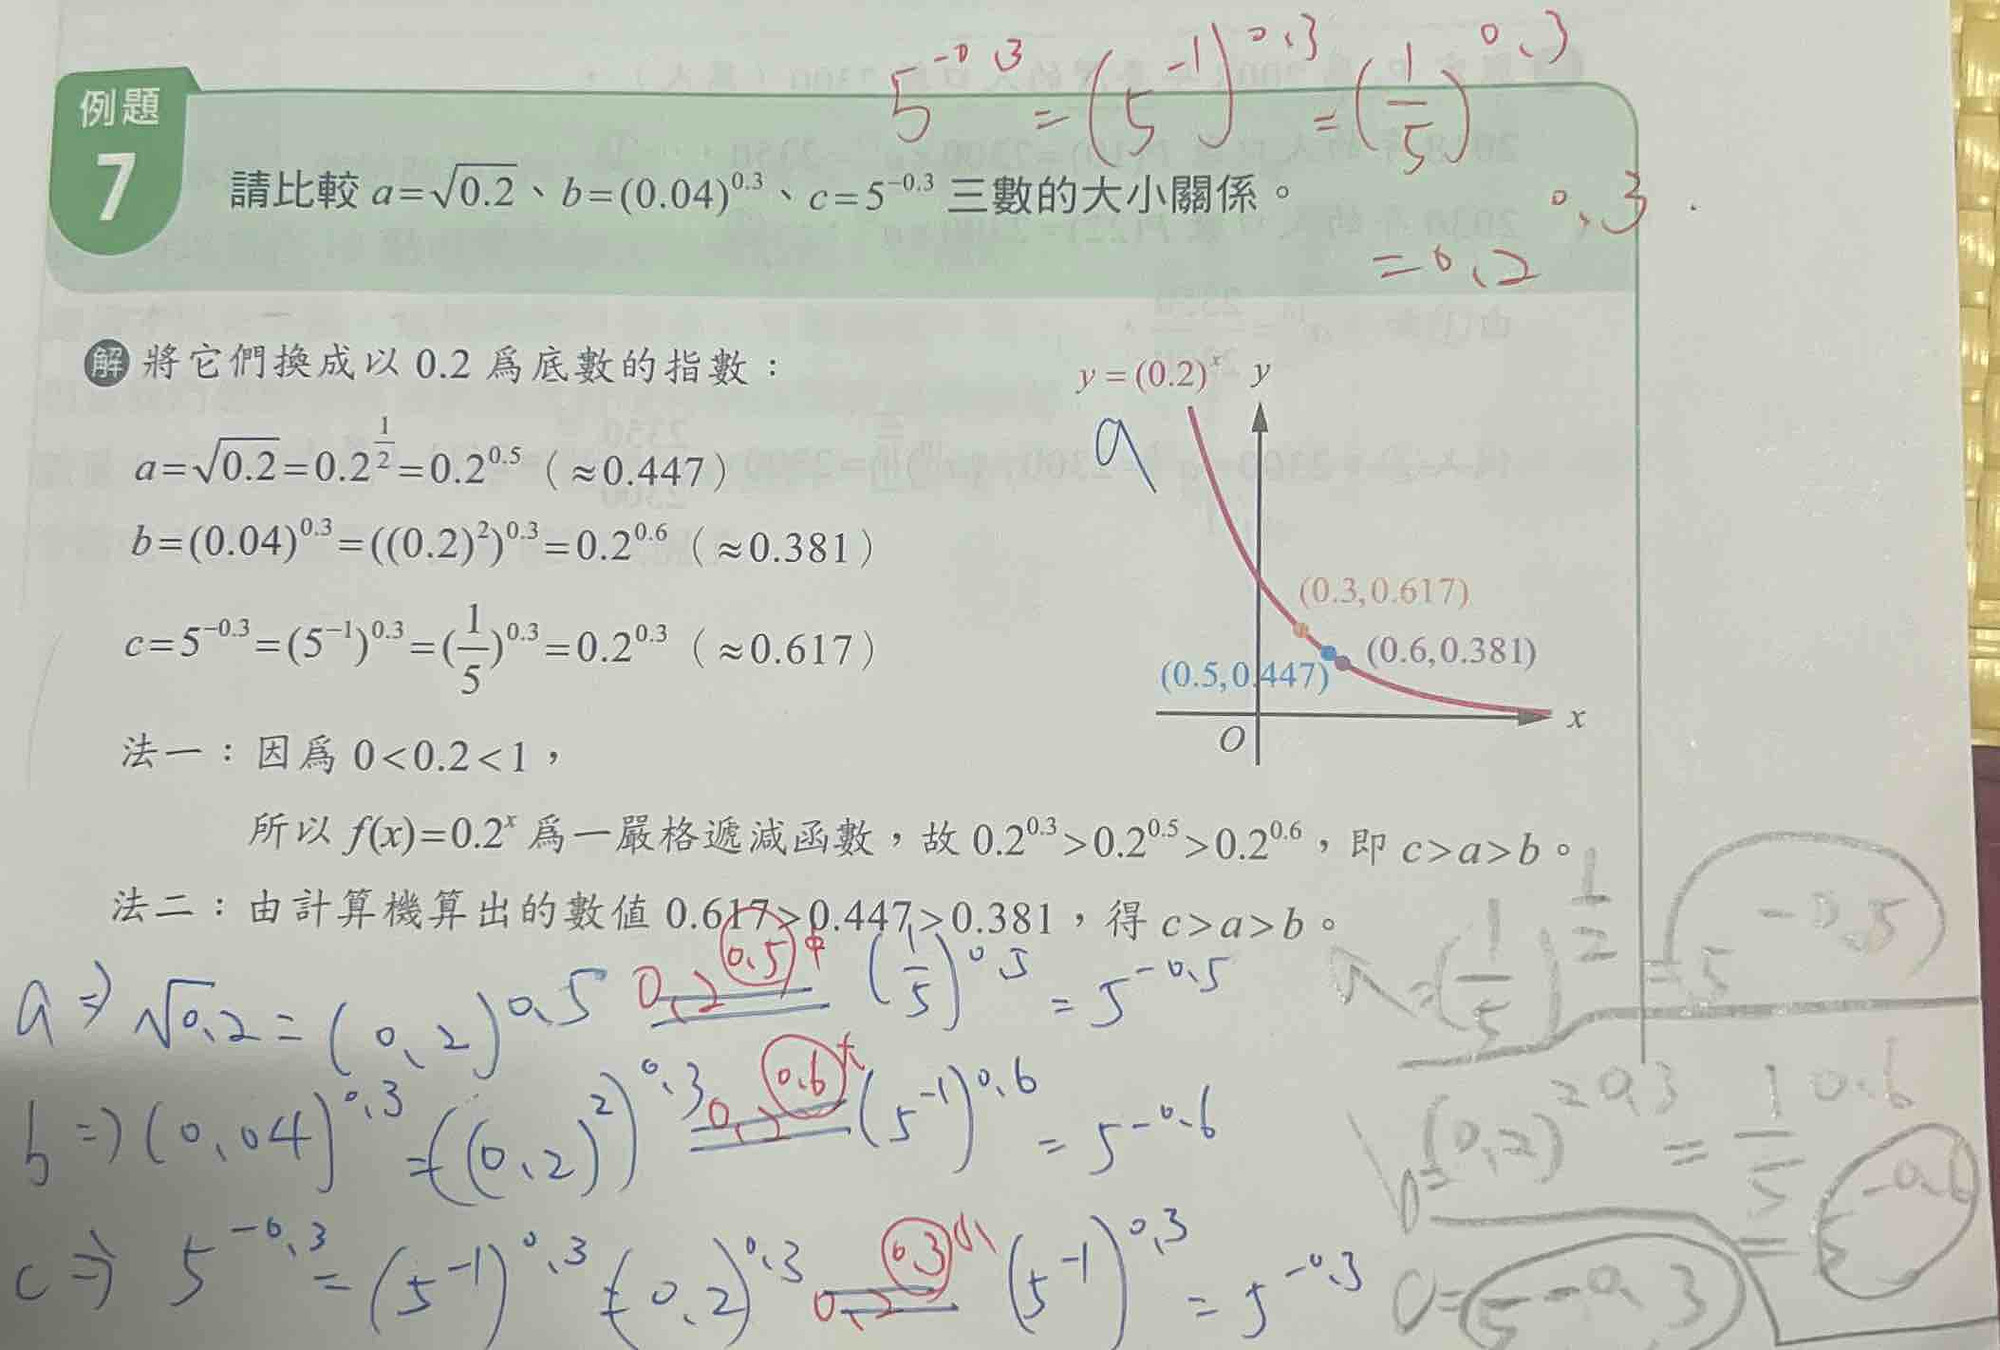 5^{-0.3} = (5^{-1})^{0.3} = (\frac{1}{5})^{0.3}
= 0.2^{0.3}
例題
7
請比較 a=√0.2、b=(0.04)^{0.3}、c=5^{-0.3} 三數的大小關係。
解 將它們換成以 0.2 爲底數的指數：
a=√0.2=0.2^{\frac{1}{2}}=0.2^{0.5}（≈0.447）
b=(0.04)^{0.3}=((0.2)^2)^{0.3}=0.2^{0.6}（≈0.381）
c=5^{-0.3}=(5^{-1})^{0.3}=(\frac{1}{5})^{0.3}=0.2^{0.3}（≈0.617）
y=(0.2)^x y
a
(0.3,0.617)
(0.6,0.381)
(0.5,0.447)
O
x
法一：因爲 0<0.2<1，
所以 f(x)=0.2^x 爲一嚴格遞減函數，故 0.2^{0.3}>0.2^{0.5}>0.2^{0.6}，即 c>a>b。
法二：由計算機算出的數值 0.617>0.447>0.381，得 c>a>b。
a ⇒ √0.2 = (0.2)^{0.5} 0.2^{0.5} 中 (\frac{1}{5})^{0.5} = 5^{-0.5}
b ⇒ (0.04)^{0.3} = ((0.2)^2)^{0.3} 0.2^{0.6} (5^{-1})^{0.6} = 5^{-0.6}
c ⇒ 5^{-0.3} = (5^{-1})^{0.3} = (0.2)^{0.3} 0.2^{0.3} 小 (5^{-1})^{0.3} = 5^{-0.3}
a=(\frac{1}{5})^{\frac{1}{2}} = 5^{-0.5}
b=(0.2)^{2 0.3} = \frac{1}{5}^{0.6}
= 5^{-0.6}
C=5^{-0.3}